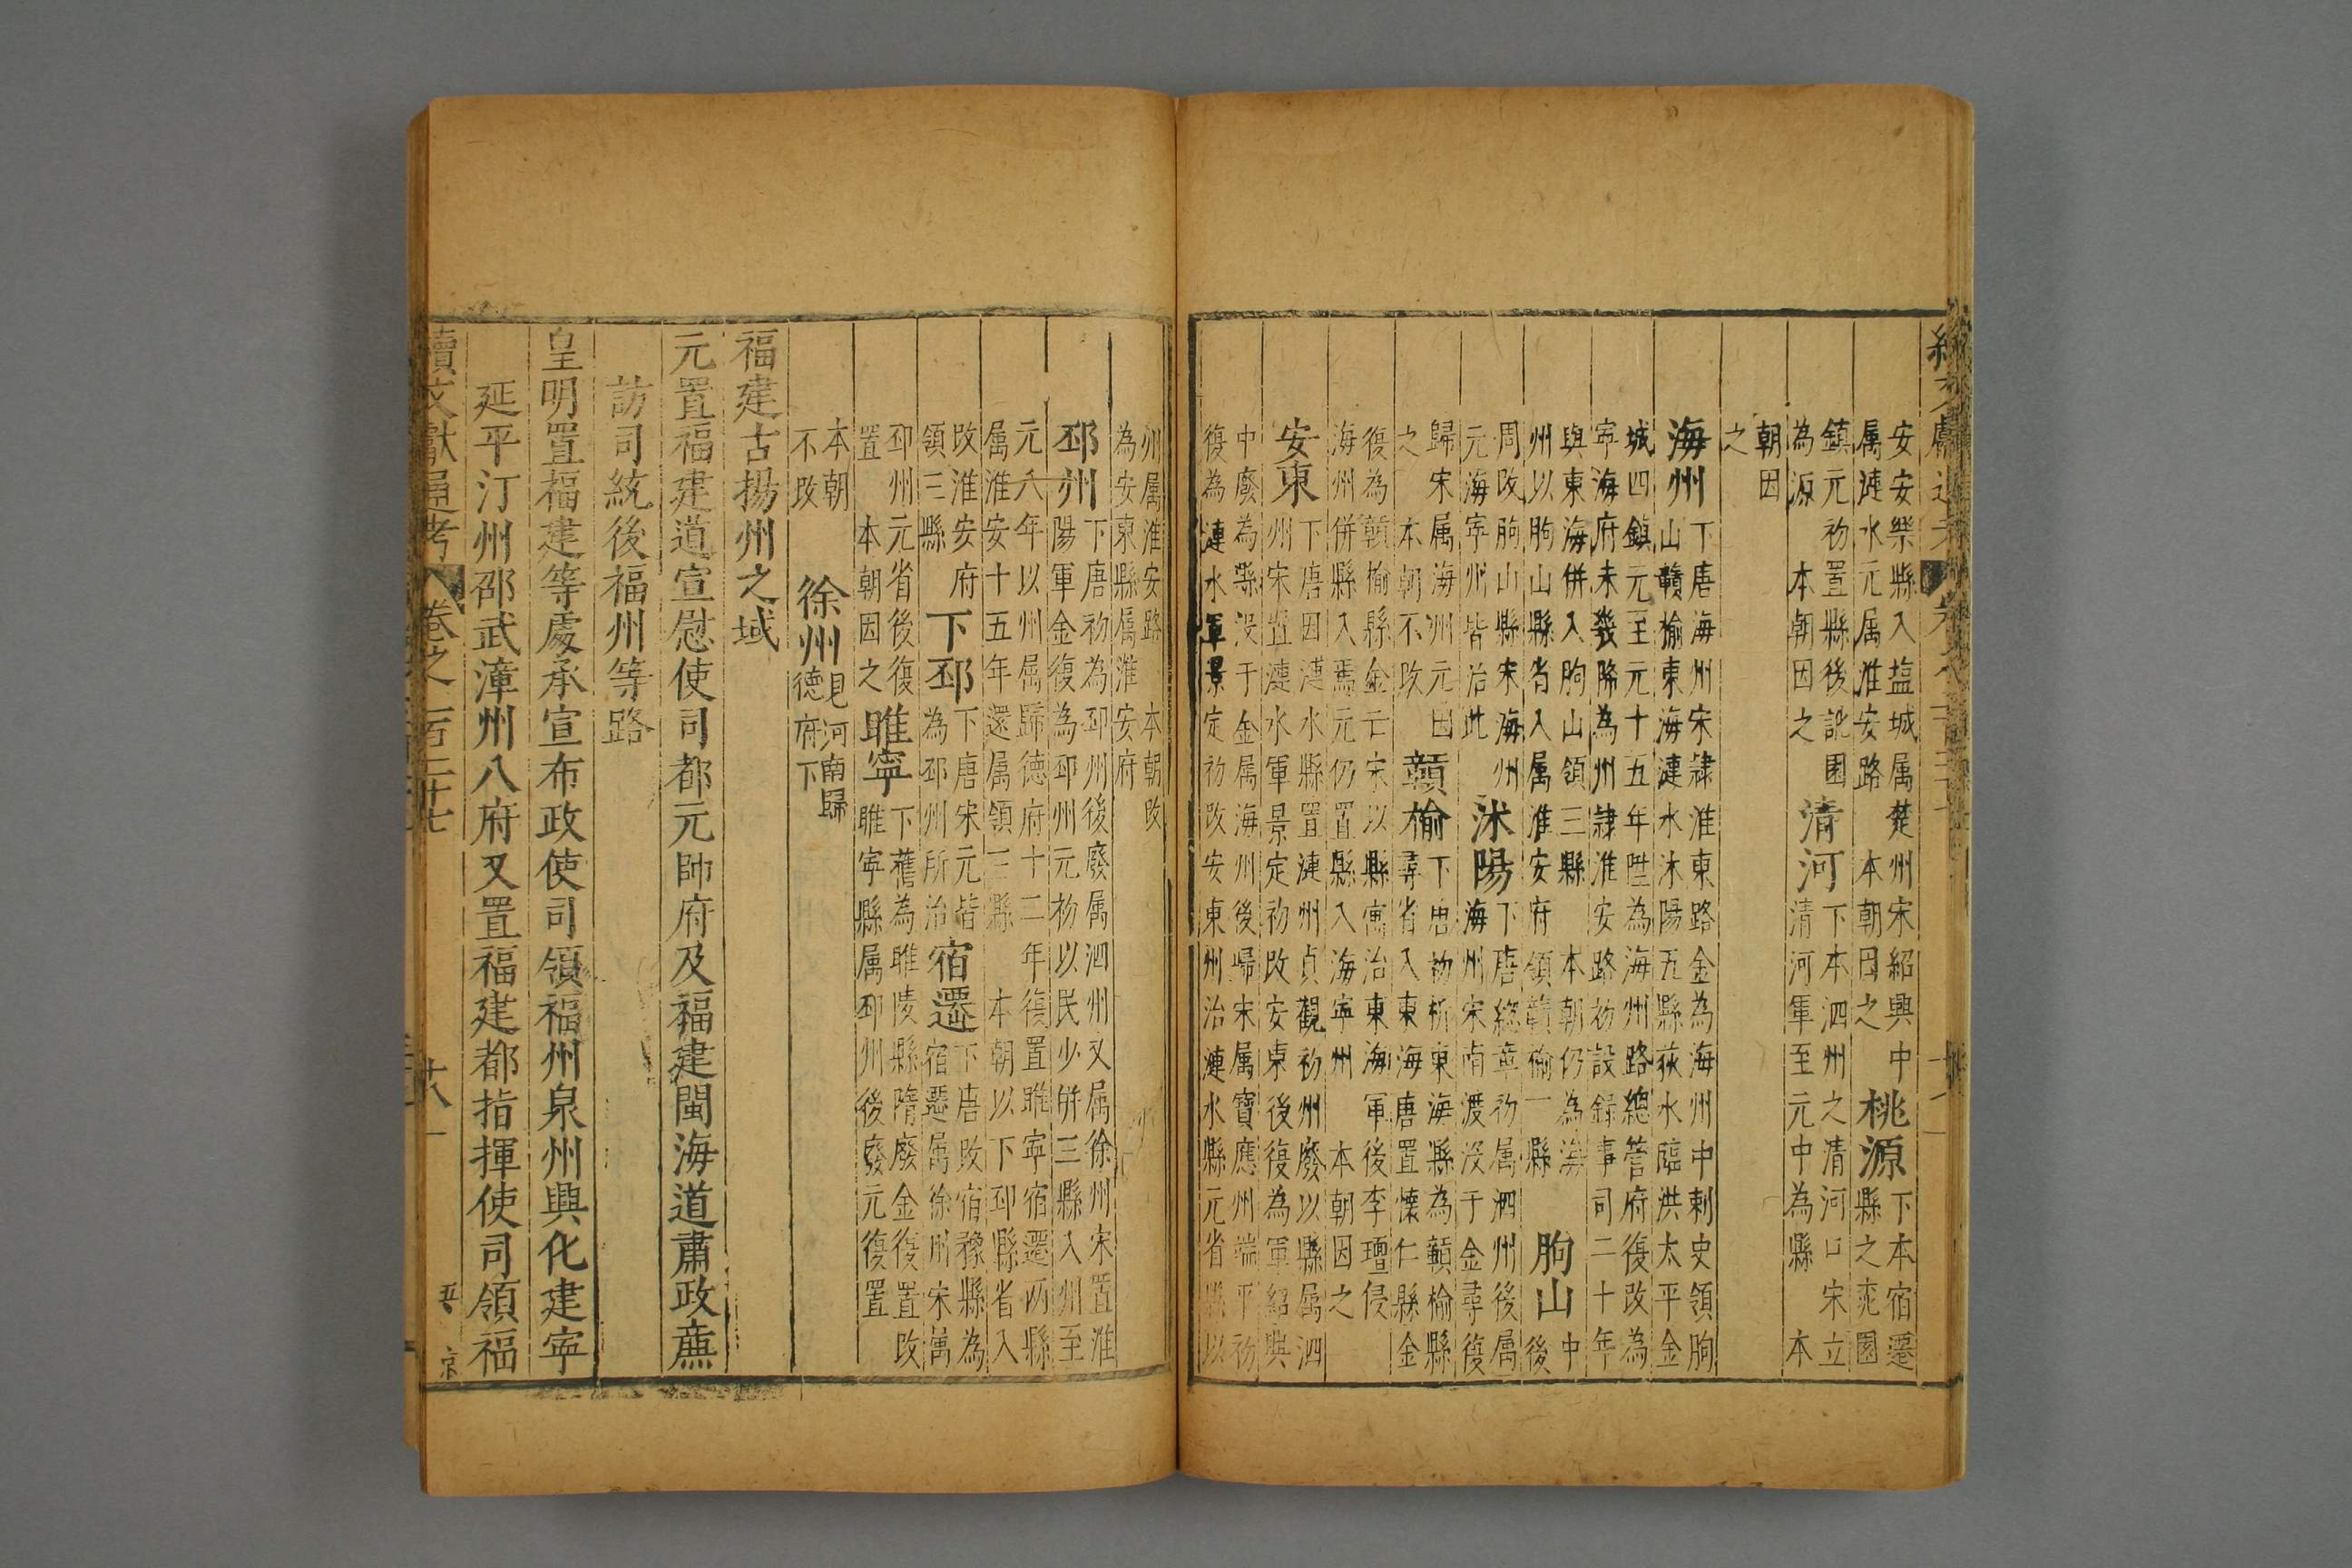 安安樂縣入塩城属楚州宋紹興中
属漣水元属淮安路 本朝因之
桃源
下本宿遷
縣之桃園
鎮元初置縣後訛園
為源 本朝因之
清河
下本泗州之清河口宋立
清河軍至元中為縣 本
朝因
之
海州
下唐海州宋隷淮東路金為海州中剌史領朐
山贛榆東海漣水沭陽五縣荻水臨洪太平金
城四鎮元至元十五年陞為海州路總管府復改為
寧海府未幾降為州隷淮安路初設録事司二十年
與東海併入朐山領三縣 本朝仍為海
州以朐山縣省入属淮安府領贛榆一縣
朐山
中
後
周改朐山縣宋海州
元海寧州皆治此
沭陽
下唐總章初属泗州後属
海州宋南渡没于金尋復
歸宋属海州元因
之 本朝不改
贑榆
下唐初析東海縣為贑榆縣
尋省入東海唐置懷仁縣金
復為贑榆縣金亡宋以縣寓治東海軍後李璮侵
海州併縣入焉元仍置縣入海寧州 本朝因之
安東
下唐因漢水縣置漣州貞觀初州廢以縣属泗
州宋置漣水軍景定初改安東後復為軍紹興
中廢為縣没于金属海州後歸宋属寶應州端平初
復為漣水軍景定初改安東州治漣水縣元省縣以
州属淮安路 本朝改
為安東縣属淮安府
邳州
下唐初為邳州後廢属泗州又属徐州宋置淮
陽軍金復為邳州元初以民少併三縣入州至
元八年以州属歸德府十二年復置睢寧宿遷兩縣
属淮安十五年還属領三縣 本朝以下邳縣省入
改淮安府
領三縣
下邳
下唐宋元皆
為邳州所治
宿遷
下唐改宿豫縣為
宿遷属徐州宋属
邳州元省後復
置 本朝因之
睢寧
下舊為睢陵縣隋廢金復置改
睢寧縣属邳州後廢元復置
本朝
不改
徐州
見河南歸
德府下
福建古揚州之域
元置福建道宣慰使司都元帥府及福建閩海道肅政廉
訪司統後福州等路
皇明置福建等處承宣布政使司領福州泉州興化建寧
延平汀州邵武漳州八府又置福建都指揮使司領福
續文獻通考 卷之二百二十七 十八